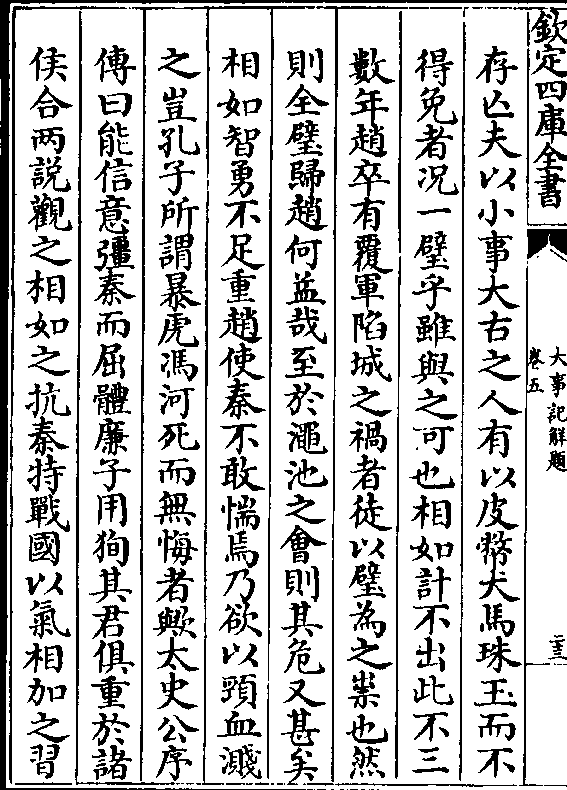 欽定四庫全書
大事記解題
卷五
二十三
存亾夫以小事大古之人有以皮幣犬馬珠玉而不
得免者况一璧乎雖與之可也相如計不出此不三
數年趙卒有覆軍陷城之禍者徒以璧為之祟也然
則全璧歸趙何益哉至於澠池之會則其危又甚矣
相如智勇不足重趙使秦不敢惴焉乃欲以頸血濺
之豈孔子所謂暴虎馮河死而無悔者歟太史公序
傳曰能信意彊秦而屈體廉子用狥其君俱重於諸
侯合兩説觀之相如之抗秦持戰國以氣相加之習